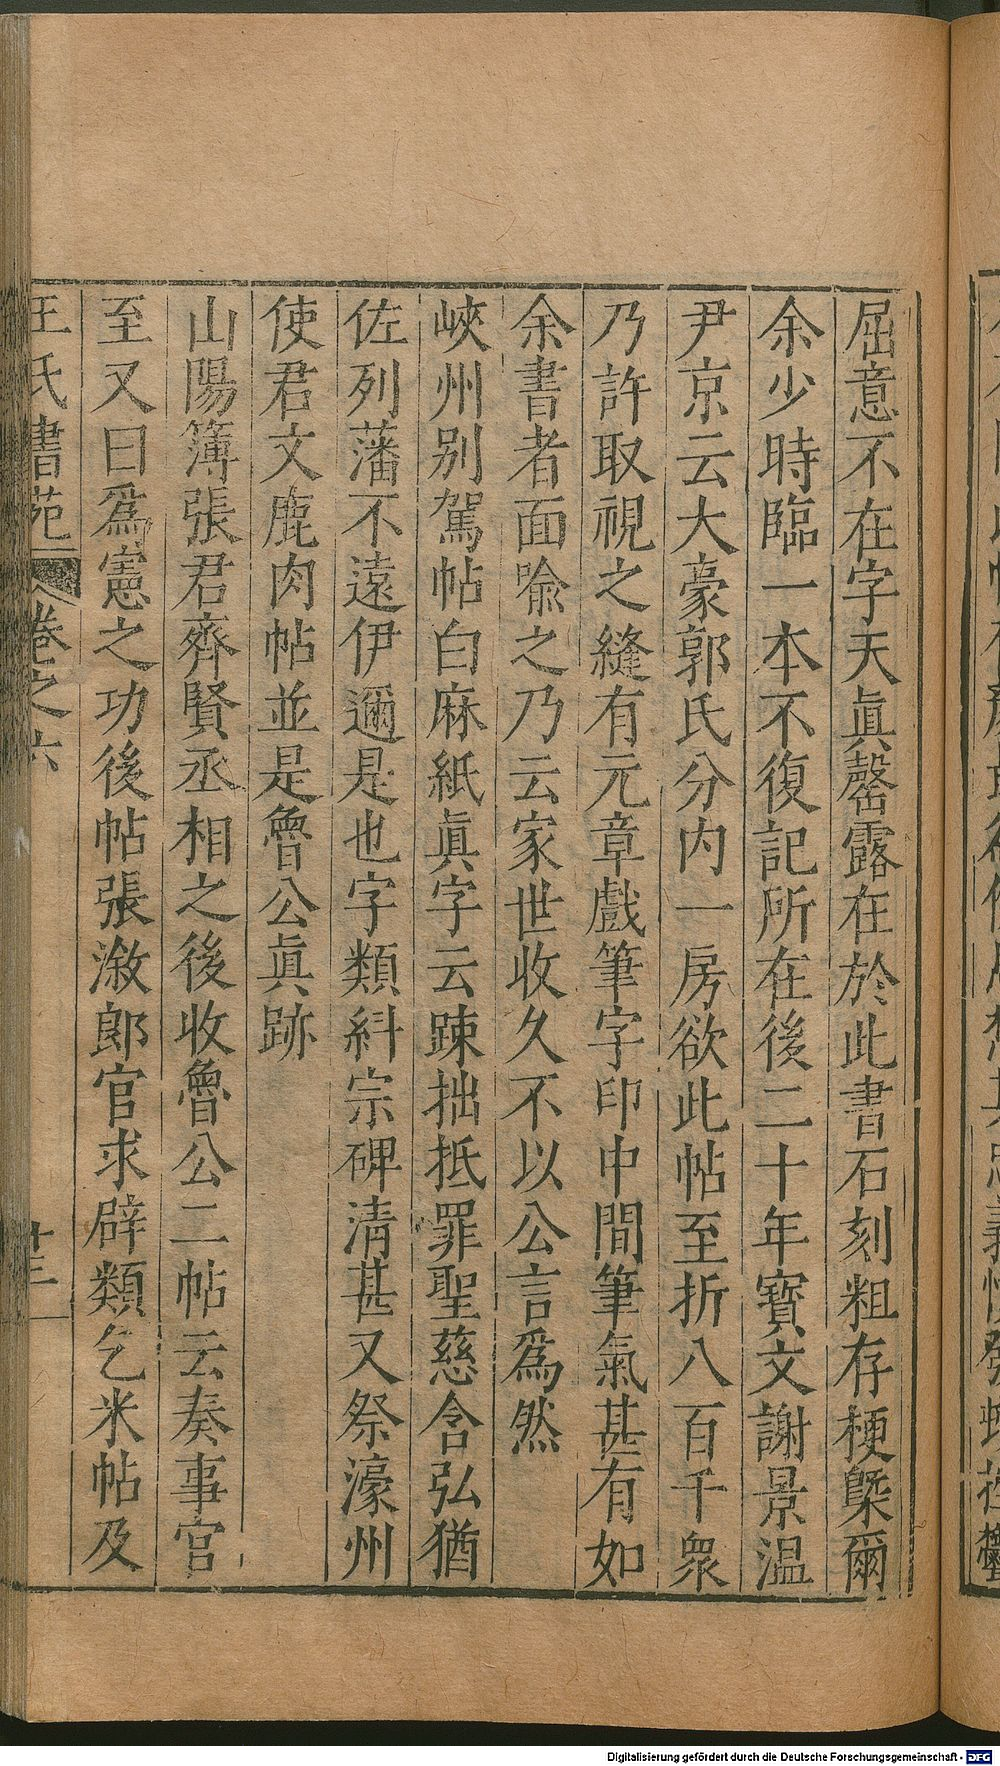 屈意不在字天眞罄露在於此書石刻粗存梗槩爾
余少時臨一本不復記所在後二十年寶文謝景温
尹京云大豪郭氏分内一房欲此帖至折八百千衆
乃許取視之縫有元章戲筆字印中間筆氣甚有如
余書者面喩之乃云家世收久不以公言爲然
峽州别駕帖白麻紙眞字云踈拙抵罪聖慈含弘猶
佐列藩不遠伊邇是也字類紏宗碑清甚又祭濠州
使君文鹿肉帖並是魯公眞跡
山陽簿張君齊賢丞相之後收魯公二帖云奏事官
至又曰爲憲之功後帖張溆郎官求辟類乞米帖及
王氏書苑
卷之六
十三
Digitalisierung gefördert durch die Deutsche Forschungsgemeinschaft - DFG